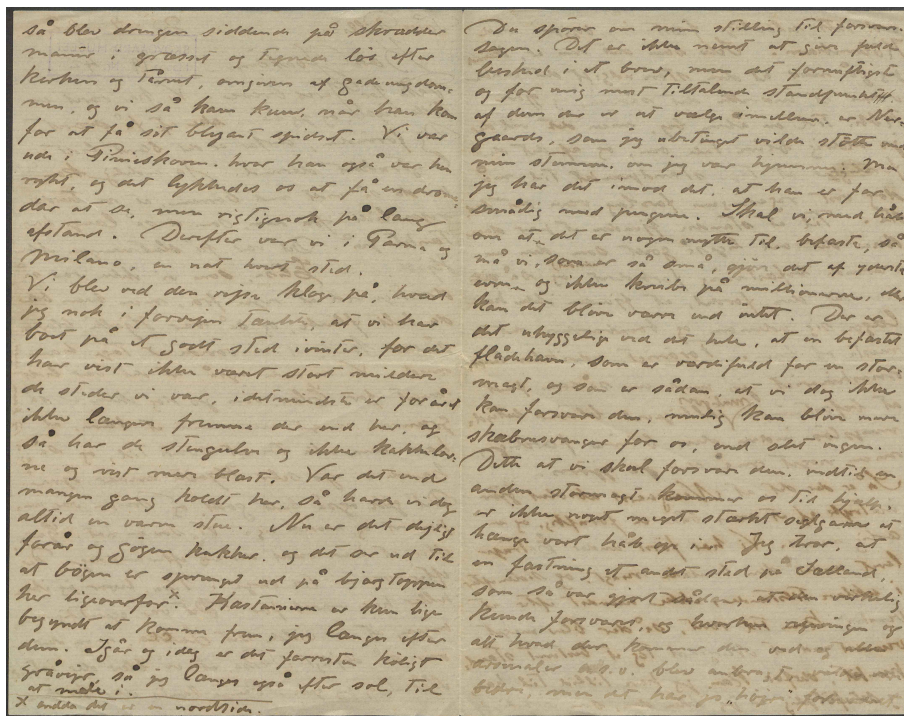 så blev drengen siddende på skrædder
manér i græsset og tegnede løs efter
kirken og tårnet, omgiven af gadeungdom-
men, og vi så ham kun, når han kom
for at få sit blyant spidset. Vi var
ude i Piniskoven, hvor han også var hen
rykt, og det lykkedes os at få en drome
dar at se, men rigtignok på lang
afstand. Derefter var vi i Parma og
Milano, en nat hvert sted.
Vi blev ved den rejse klage på, hvad
jeg nok i forvejen tænkte, at vi har
boet på et godt sted ivinter, for det
har vist ikke været stort mildere
de steder vi var, idetmindste er foråret
ikke længer fremme der end her, og
så har de stengulve og ikke kakkelov-
ne og vist mer blæst. Var det end
mangen gang koldt her, så havde vi dog
altid en varm stue. Nu er det dejligt
forår og gøgen kukker, og det ser ud til
at bøgen er sprunget ud på bjærgtoppen
her ligeoverfor x. Kastanierne er kun lige
begyndt at komme frem, jeg længes efter
dem. Igår og idag er det forresten køligt
gråvejr, så jeg længes også efter sol, til
at male i.
x endda det er en nordside.
Du spörer om min stilling til forsvars-
sagen. Det er ikke nemt at give fuld
besked i et brev, men det fornuftigst
og for mig mest tiltalende standpunkt
af dem der er at vælge imellem, er Neer-
gaards, som jeg ubetinget vilde støtte med
min stemme, om jeg var hjemme. Men
jeg har det imod det, at han er for
smådig med pengene. Skal vi, med håb
om at det er nogen nytte til, befæste, så
må vi, som er så små, gøre det af yderste
evne og ikke knibe på millionerne, ellers
kan det blive værre end intet. Der er
det uhyggelige ved det hele, at en befæstet
flådehavn, som er værdifuld for en stor-
magt, og som er sådan at vi dog ikke
kan forsvare den, mulig kan blive mere
skæbnesvanger for os, end slet ingen.
Dette at vi skal forsvare den, indtil en
anden stormagt kommer os til hjælp,
er ikke noget meget stærkt sejlgarn at
hænge vort håb op i. Jeg tror, at
en fæstning et andet sted på Sælland,
som så var gjort sådan at den virkelig
kunde forsvares, og hvorhen regeringen og
alt hvad der kommer den ved og alle
o.s.v. blev anbragt,
bedre, men det har jo „højre" forhindret